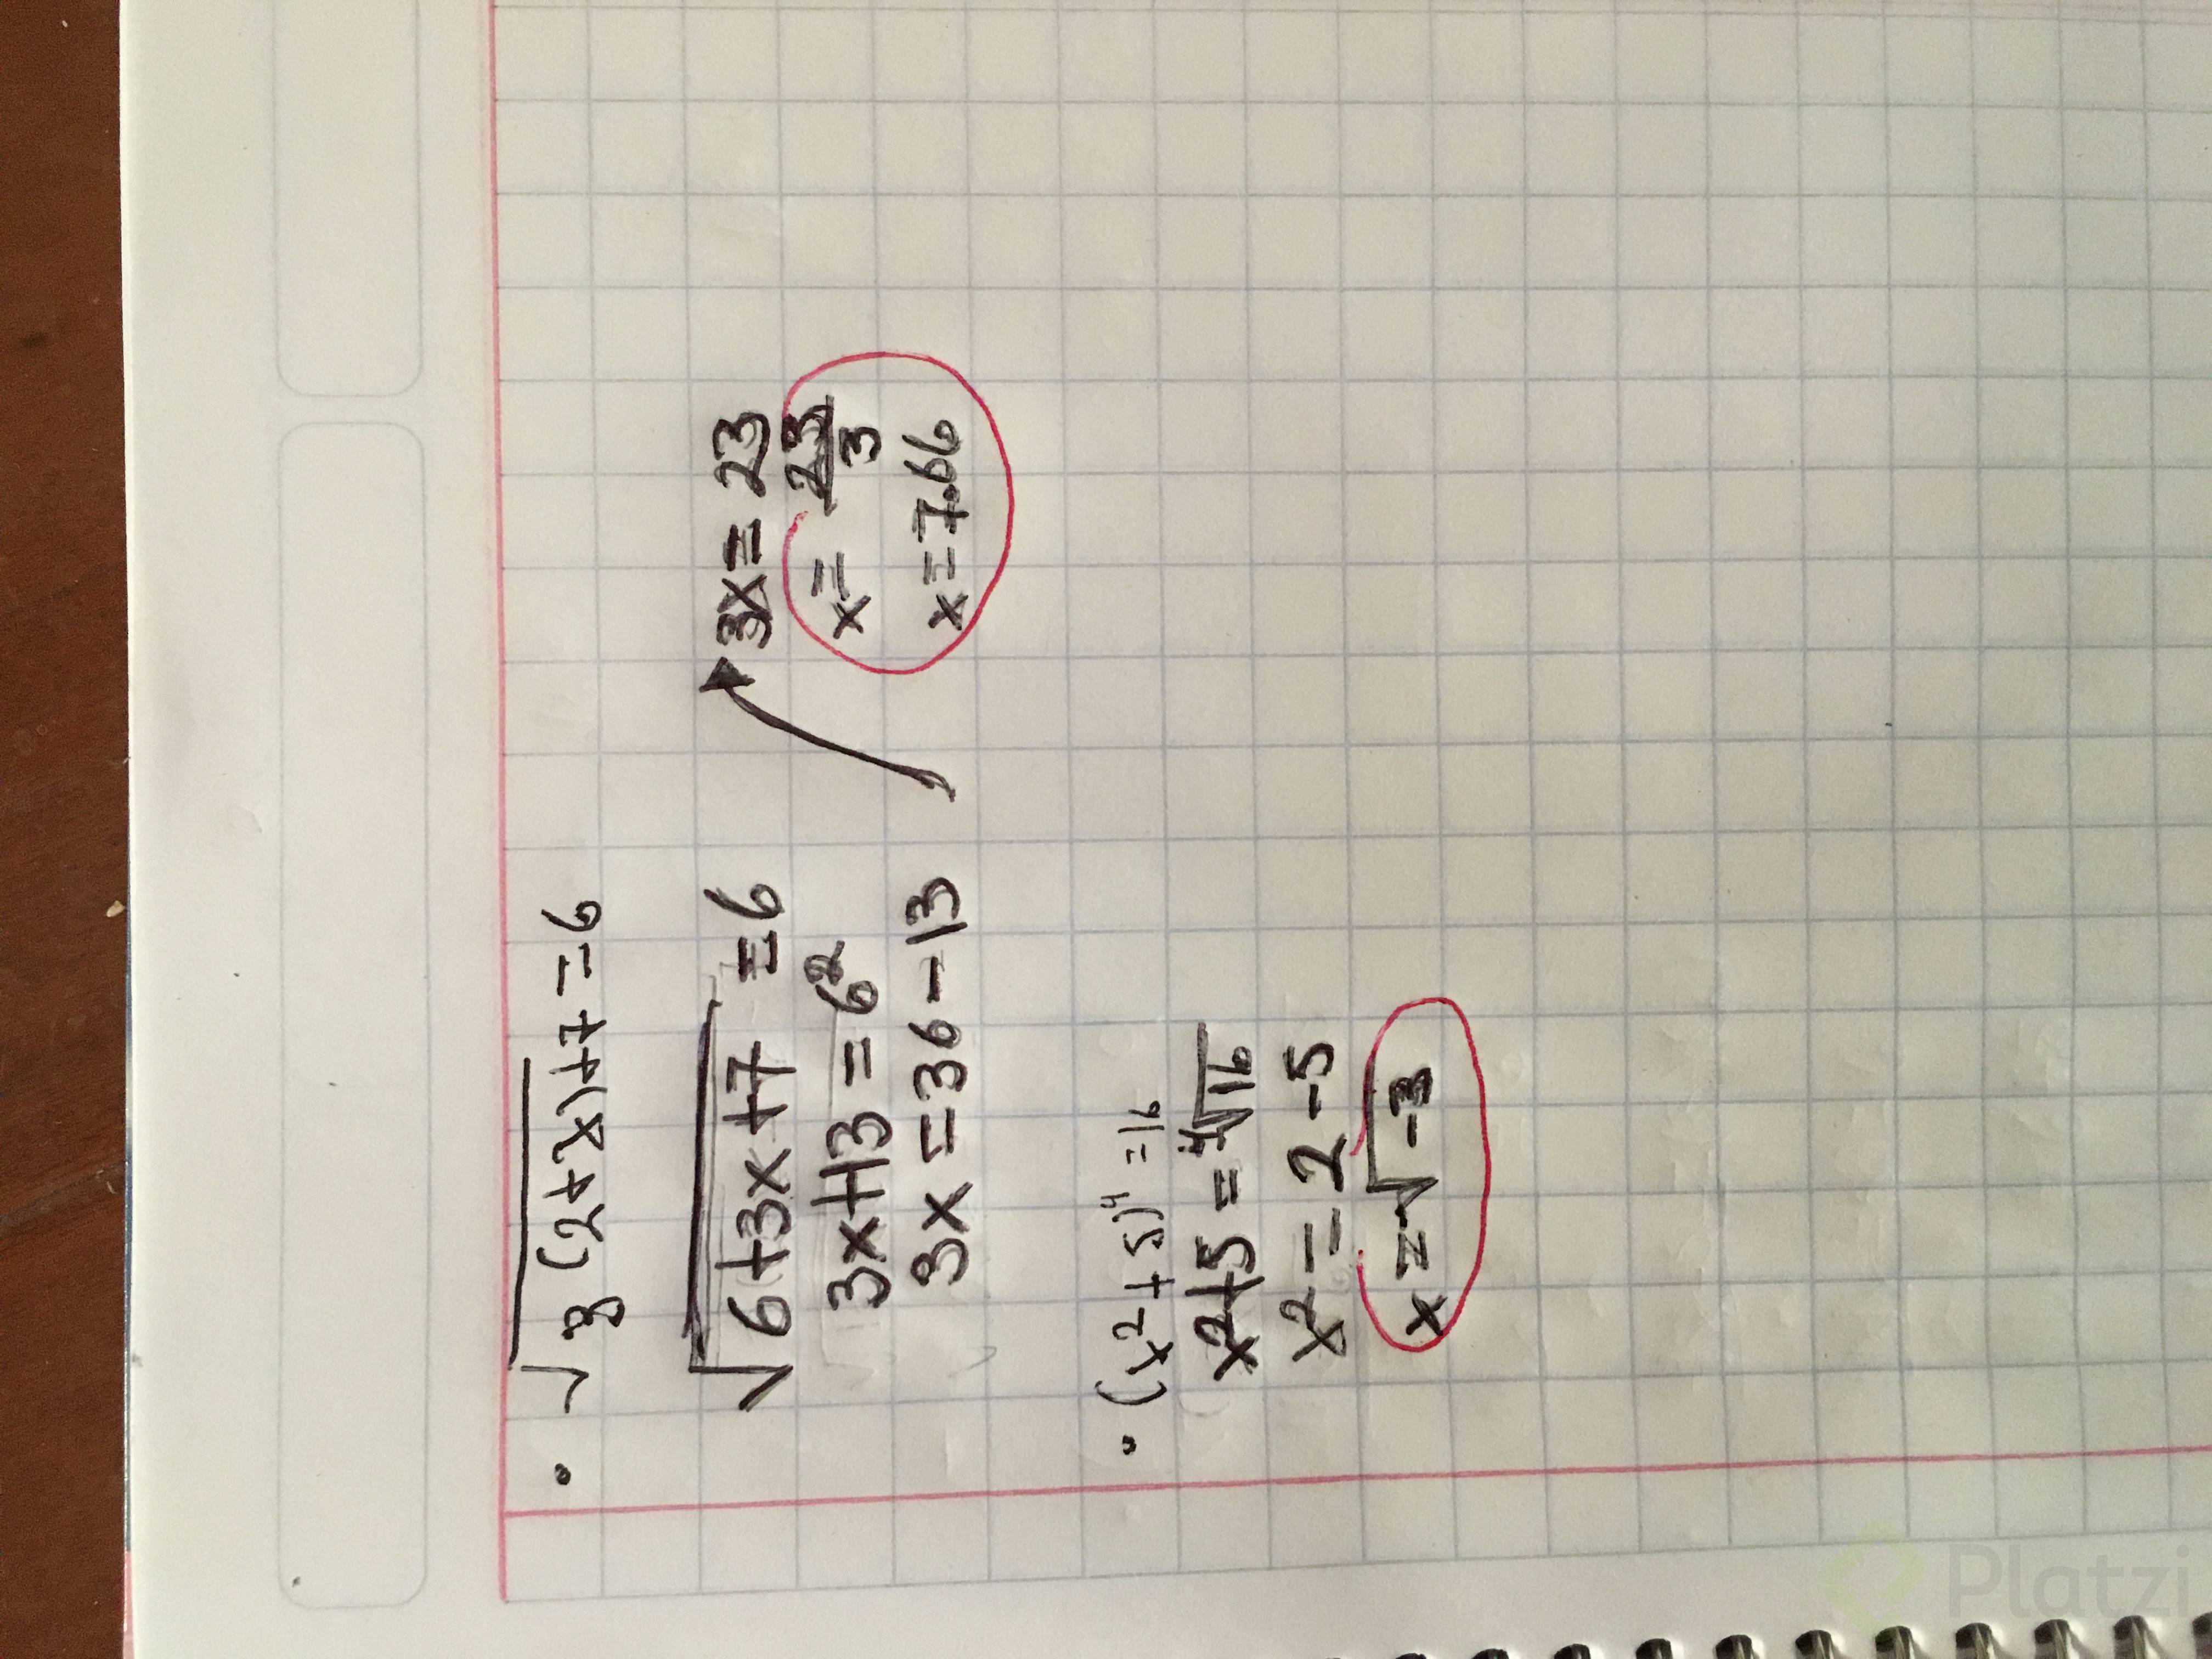 • √3(2+x)+7 = 6
√6+3x+7 = 6
3x+13 = 6²
3x = 36 - 13
3x = 23
x = 23/3
x = 7.66
• (x²+5)⁴ = 16
x²+5 = ⁴√16
x² = 2 - 5
x = √-3
Platzi